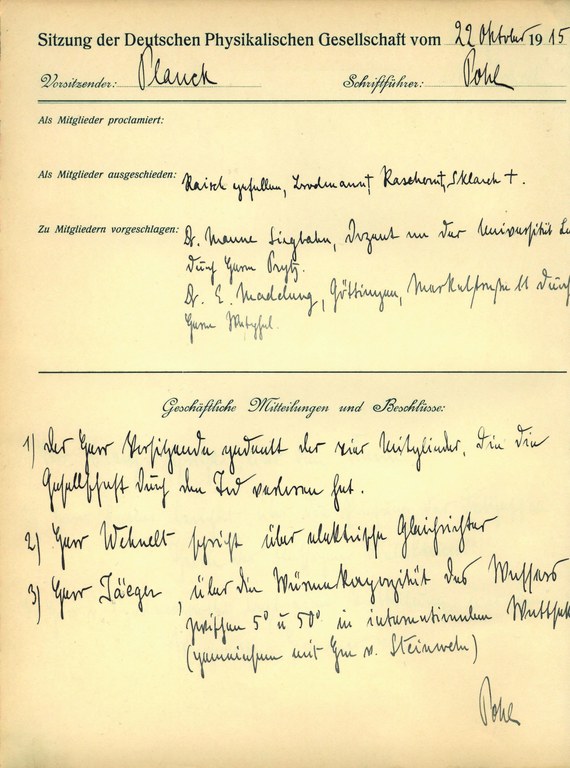 Sitzung der Deutschen Physikalischen Gesellschaft vom 22 Oktober 1915
Vorsitzender: Planck Schriftführer: Pohl
Als Mitglieder proclamiert:
Als Mitglieder ausgeschieden: gefallen, Sklarek †.
Zu Mitgliedern vorgeschlagen: Dr. Manne Siegbahn, Dozent an der Universität
durch Herrn Prytz.
Dr. E. Madelung, Göttingen, 11 durch
Herrn
Geschäftliche Mitteilungen und Beschlüsse:
1) Der Herr Vorsitzende gedenkt der vier Mitglieder, die die
Gesellschaft durch den Tod verloren hat.
2) Herr Wehnelt spricht über elektrische Gleichrichter
3) Herr Jäeger, über die Wärmekapazität des Wassers
zwischen 5° u 50° in internationalen
(gemeinsam mit Hrn v. Steinwehr)
Pohl